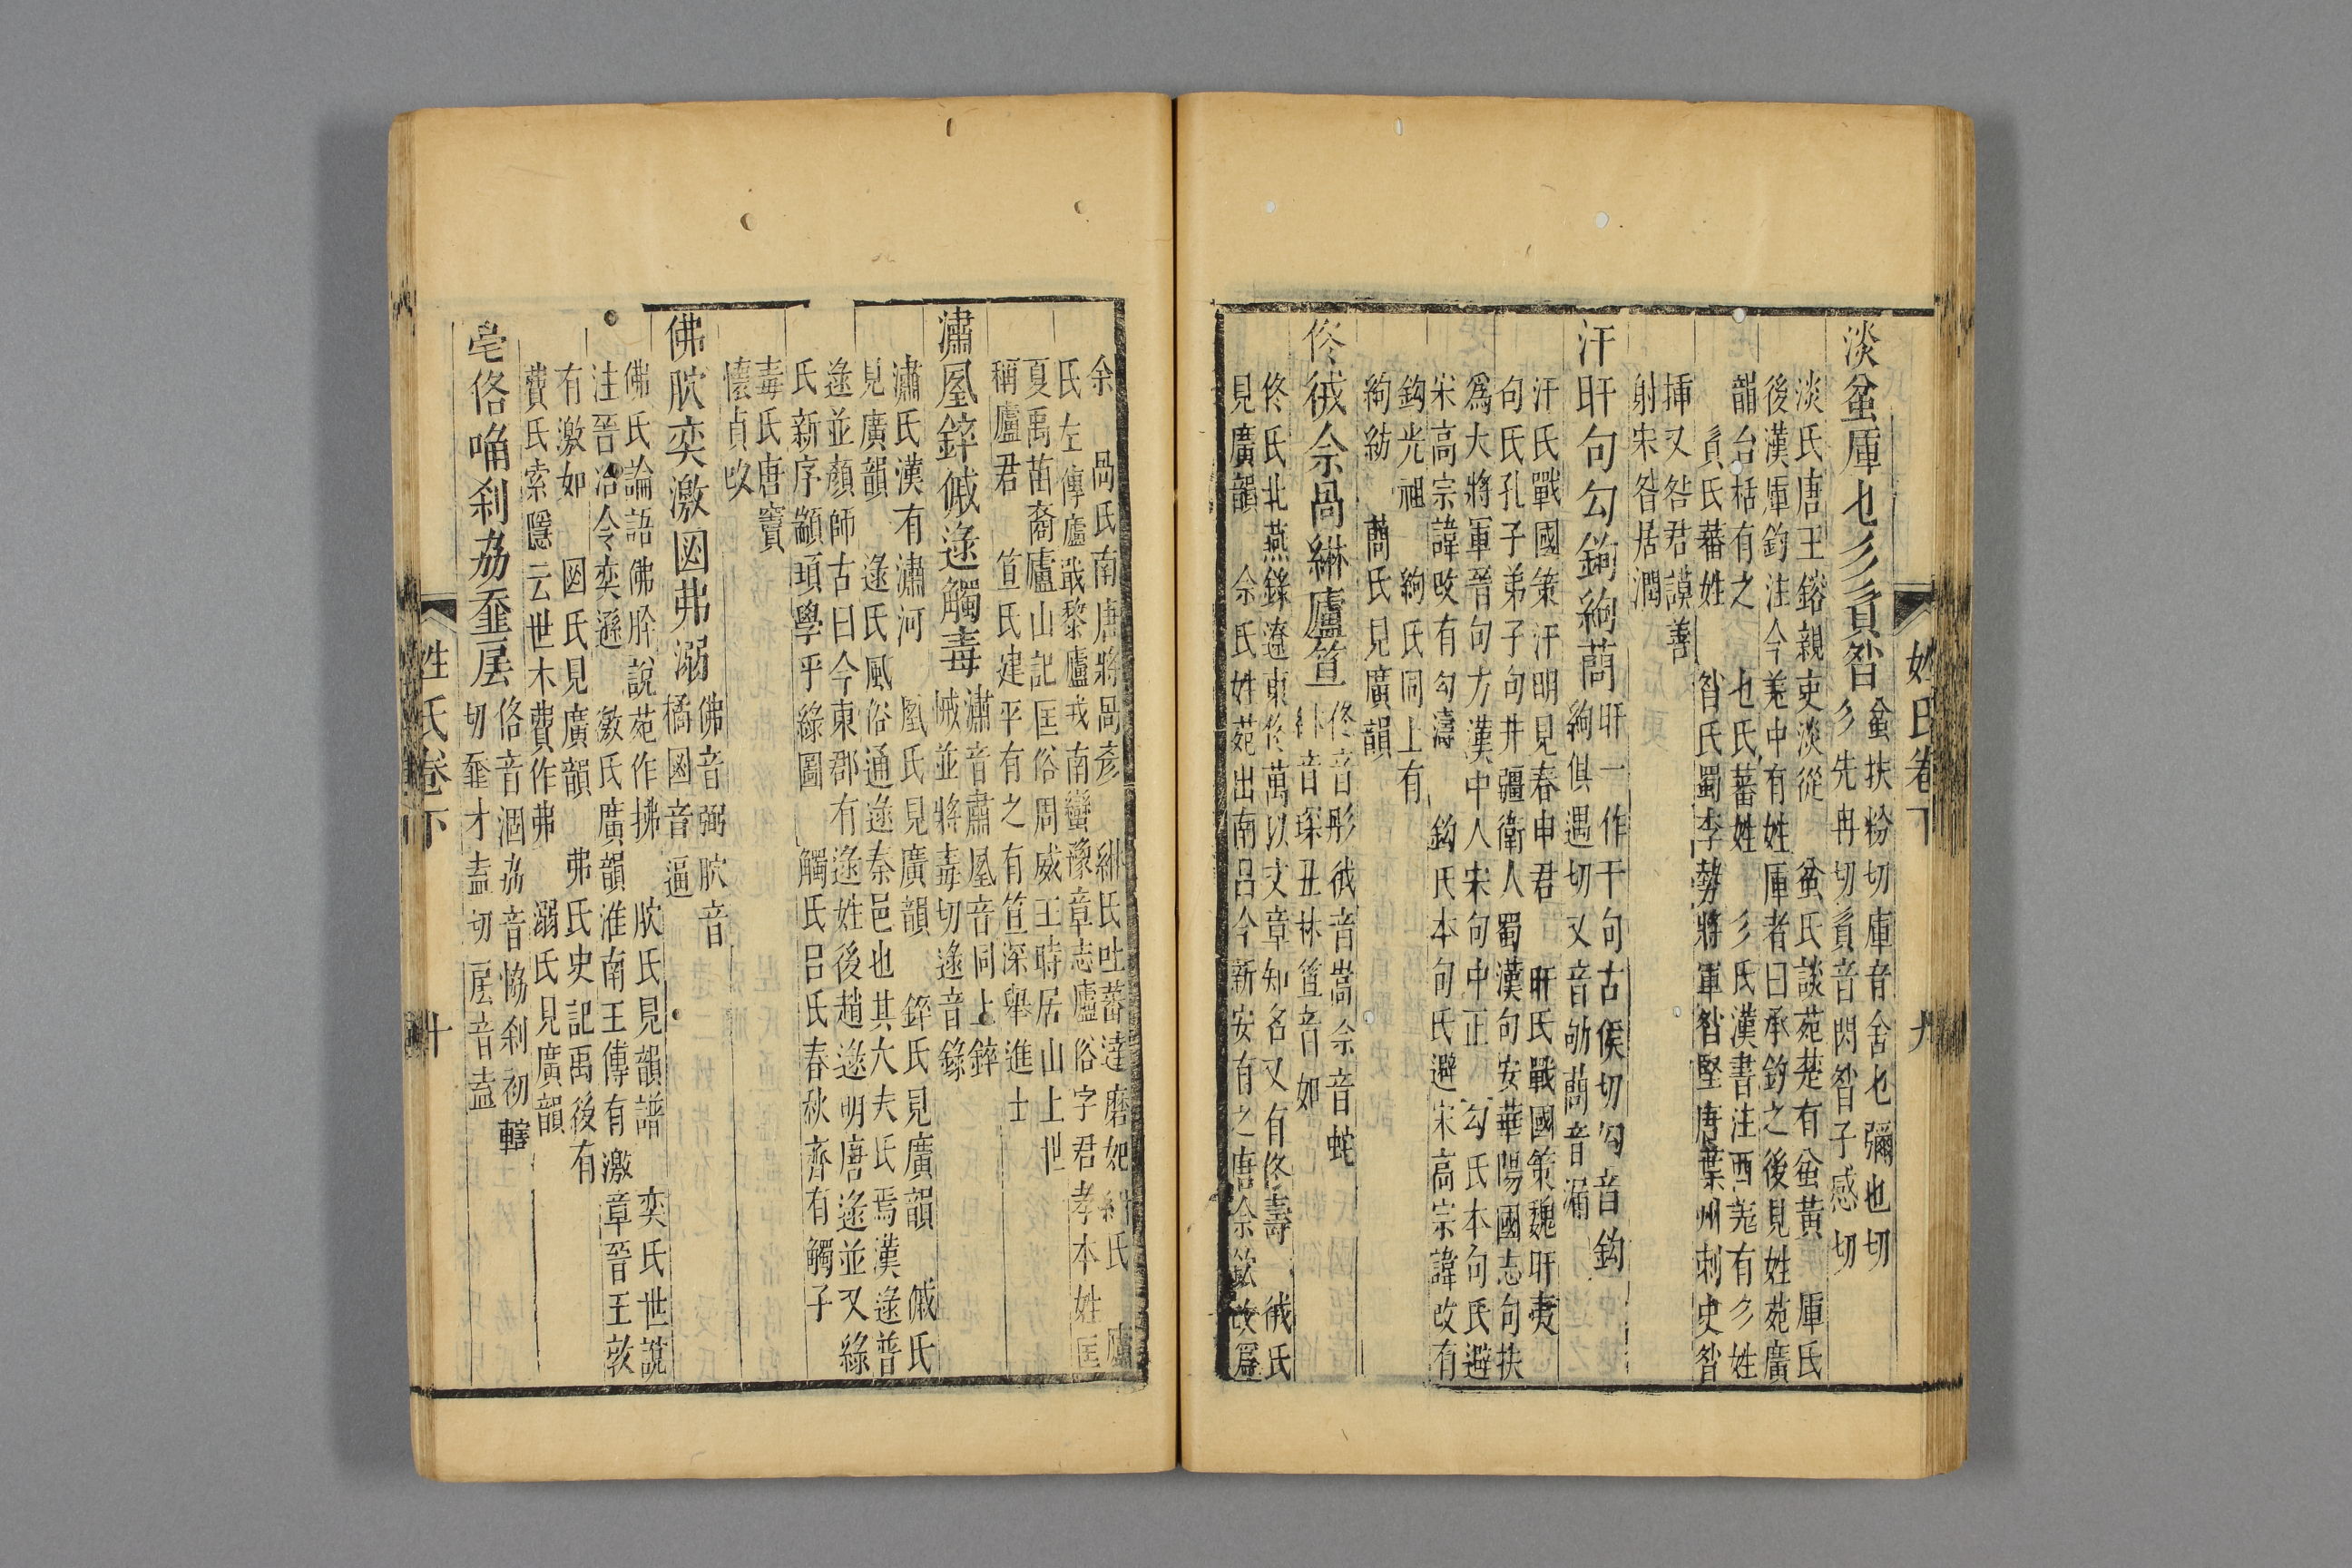 姓氏卷下 九
淡蚠厙乜彡貟昝
蚠扶粉切厙音舍乜彌也切
彡先冉切貟音閃昝子感切
淡氏唐王鎔親吏淡從 蚠氏談苑楚有蚠黃 厙氏
後漢厙鈞注今羌中有姓厙者曰承鈞之後見姓苑廣
韻台栝有之 乜氏蕃姓 彡氏漢書注西羌有彡姓
貟氏蕃姓 昝氏蜀李勢將軍昝堅唐葉州刺史昝
挿又昝君謨善
射宋昝居潤
汗旰句勾鉤絢䕍
旰一作干句古侯切勾音鈎
絢俱遇切又音劬䕍音漏
汗氏戰國策汗明見春申君 旰氏戰國策魏旰夷
句氏孔子弟子句井疆衛人蜀漢句安華陽國志句扶
爲大將軍晉句方漢中人宋句中正 勾氏本句氏避
宋高宗諱改有勾濤 鈎氏本句氏避宋高宗諱改有
鈎光祖 絢氏同上有
絢紡 䕍氏見廣韻
佟佷佘咼綝廬笡
佟音彤 音嵩佘音蛇
綝音琛丑林笡音如
佟氏北燕錄遼東佟萬以文章知名又有佟壽 氏
見廣韻 佘氏姓苑出南昌今新安有之唐佘欽改爲
余 咼氏南唐將咼彥 綝氏吐蕃達磨妃綝氏 廬
氏左傳廬戢黎廬戎南蠻豫章志廬俗字君孝本姓匡
夏禹苗裔廬山記匡俗周威王時居山上世
稱廬君 笡氏建平有之有笡深舉進士
潚凰鋅傶逯觸毒
潚音肅凰音同上鋅
傶並將毒切逯音錄
潚氏漢有潚河 凰氏見廣韻 鋅氏見廣韻 傶氏
見廣韻 逯氏風俗通逯秦邑也其大夫氏焉漢逯普
逯並顏師古曰今東郡有逯姓後趙逯明唐逯並又綠
氏新序顓頊學乎綠圖 觸氏呂氏春秋齊有觸子
毒氏唐竇
懷貞改
佛肷奕激囡弗溺
佛音弼肷音
橘囡音逼
佛氏論語佛肸說苑作拂 肷氏見韻譜 奕氏世說
注晉冶令奕遜 激氏廣韻淮南王傳有激章晉王敦
有激如 囡氏見廣韻 弗氏史記禹後有
費氏索隱云世木費作弗 溺氏見廣韻
亳佫啢刹劦坴㞐
佫音涸劦音恊刹初轄
切坴才盍切㞐音盍
姓氏卷下 十